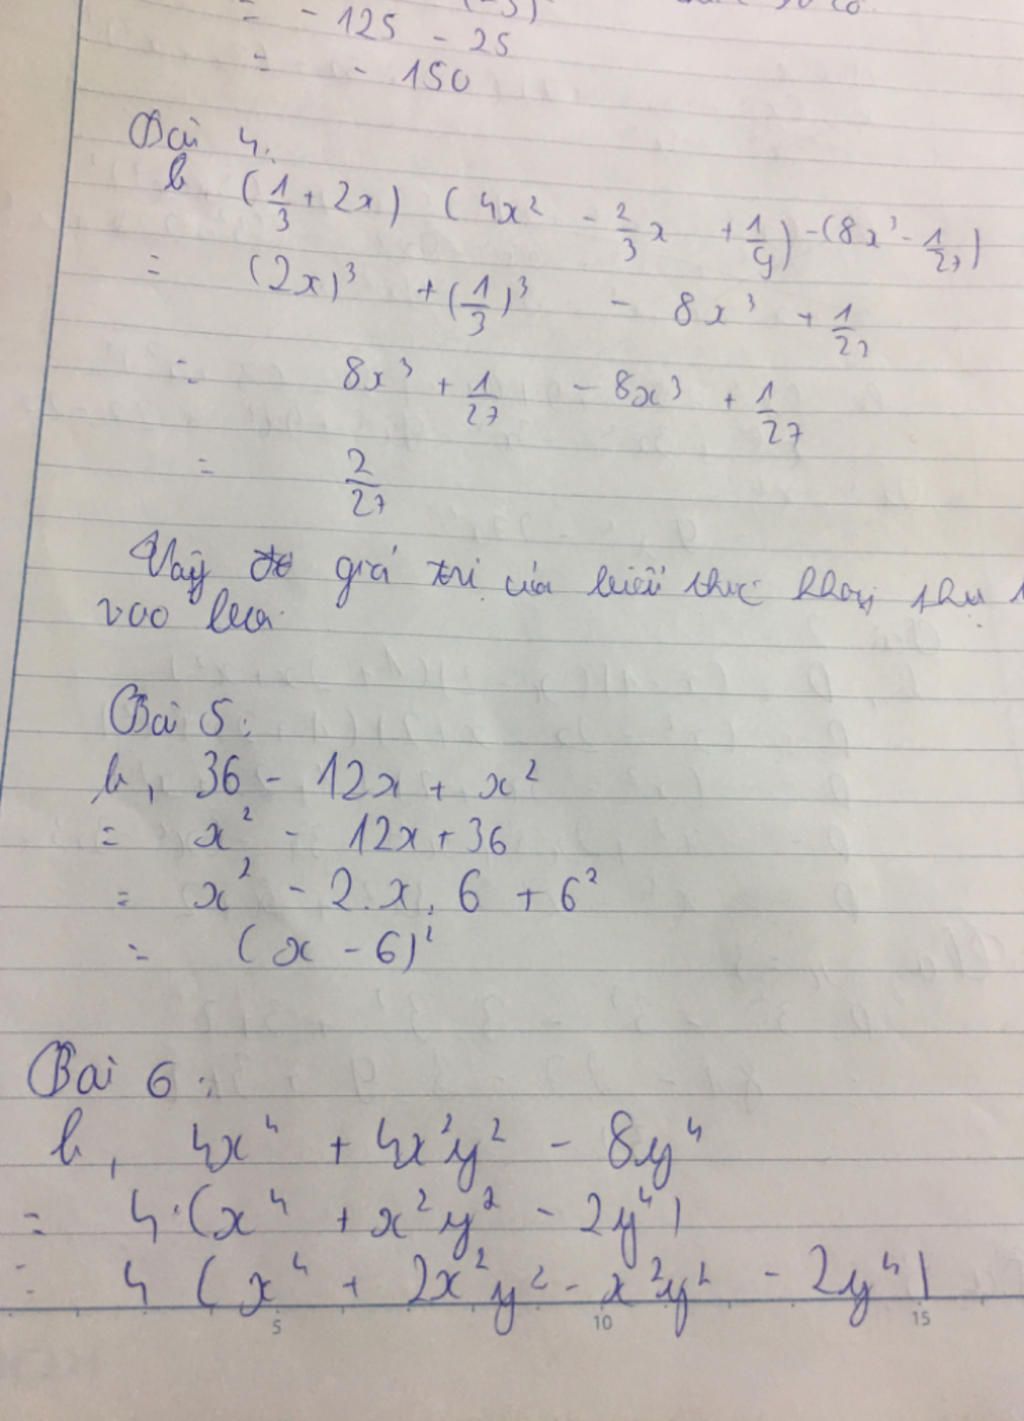 = - 125 - 25
= - 150
Bài 4.
b (1/3 + 2x) (4x² - 2/3 x + 1/9) - (8x³ - 1/27)
= (2x)³ + (1/3)³ - 8x³ + 1/27
= 8x³ + 1/27 - 8x³ + 1/27
= 2/27
Vậy giá trị của biểu thức không thụ
vào biến
Bài 5:
b, 36 - 12x + x²
= x² - 12x + 36
= x² - 2.x.6 + 6²
= (x - 6)²
Bài 6:
b, 4x⁴ + 4x²y² - 8y⁴
= 4.(x⁴ + x²y² - 2y⁴)
= 4 (x⁴ + 2x²y² - x²y² - 2y⁴)
5 10 15